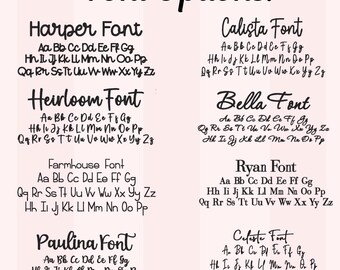 Harper Font
Aa Bb Cc Dd Ee Ff Gg
Hh Ii Jj Kk Ll Mm Nn Oo Pp
Qq Rr Ss Tt Uu Vv Ww Xx Yy Zz
Calista Font
Aa Bb Cc Dd Ee Ff Gg
Hh Ii Jj Kk Ll Mm Nn Oo Pp
Qq Rr Ss Tt Uu Vv Ww Xx Yy Zz
Heirloom Font
Aa Bb Cc Dd Ee Ff Gg
Hh Ii Jj Kk Ll Mm Nn Oo Pp
Qq Rr Ss Tt Uu Vv Ww Xx Yy Zz
Bella Font
Aa Bb Cc Dd Ee Ff Gg
Hh Ii Jj Kk Ll Mm Nn Oo Pp
Qq Rr Ss Tt Uu Vv Ww Xx Yy Zz
Farmhouse Font
Aa Bb Cc Dd Ee Ff Gg
Qq Rr Ss Tt Uu Vv Ww Xx Yy Zz
Hh Ii Jj Kk Ll Mm Nn Oo Pp
Ryan Font
Aa Bb Cc Dd Ee Ff Gg
Hh Ii Jj Kk Ll Mm Nn Oo Pp
Qq Rr Ss Tt Uu Vv Ww Xx Yy Zz
Paulina Font
Aa Bb Cc Dd Ee Ff Gg
Hh Ii Jj Kk Ll Mm Nn Oo Pp
Celeste Font
Aa Bb Cc Dd Ee Ff Gg
Hh Ii Jj Kk Ll Mm Nn Oo Pp